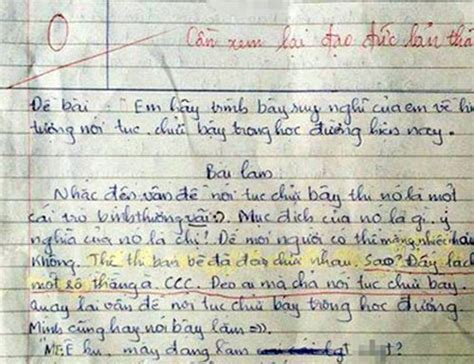 0
Cần xem lại đạo đức bản thâ
Đề bài : "Em hãy trình bày suy nghĩ của em về hi
tượng nói tục, chửi bậy trong học đường hiện nay.
Bài làm
Nhắc đến vấn đề nói tục chửi bậy thì nó là một
cái trò bình thường vãi :). Mục đích của nó là gì, ý
nghĩa của nó là chi! Để mọi người có thể mắng nhiếc hả
Không. Thế thì bạn bè đã đéo chửi nhau. Sao? Đấy là c
một số thằng à. CCC. Đéo ai mà chả nói tục chửi bậy.
quay lại vấn đề nói tục chửi bậy trong học đường
Mình cũng hay nói bậy lắm =)).
mày đang làm